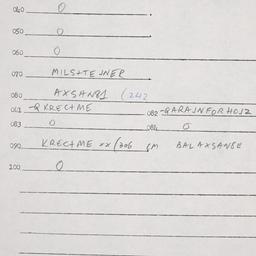 040 0
050 0
060 0
070 MILSTTEINER
080 AXSAN81 (242
081 -QXRECTME 082 -QARAINFORHOIZ
083 0 084 0
090 KRECTME xx (306 SM BALAXSANBE
100 0